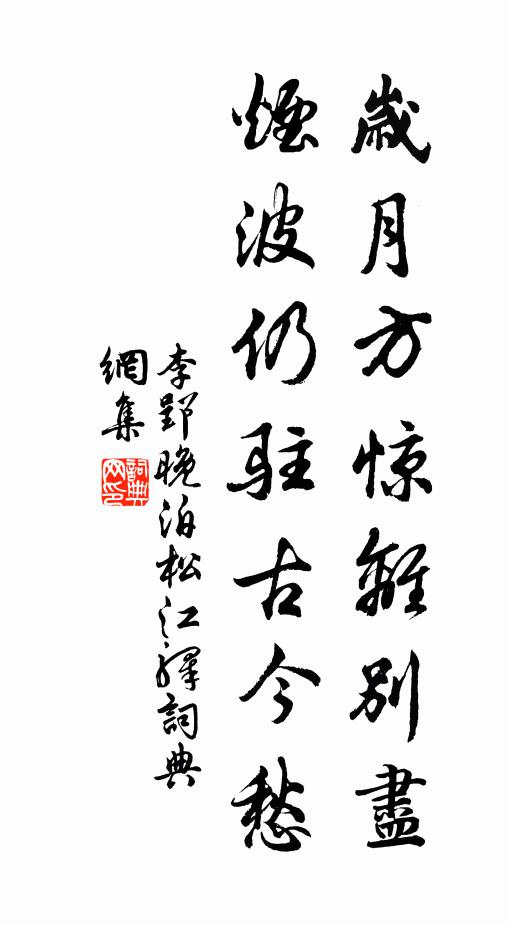 歲月方惊離別盡
煙波仍駐古今愁
李郢晚泊松江驛詞典
網集
詞典
网印